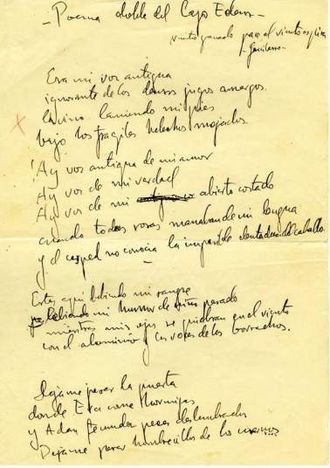 - Poema doble del Lago Eden -
nuestro ganado pace, el viento espira
Garcilaso
Era mi voz antigua
ignorante de los densos jugos amargos
la vino lamiendo mis pies
bajo los fragiles helechos mojados.
¡Ay voz antigua de mi amor
Ay voz de mi verdad
Ay voz de mi abierto costado
cuando todas rosas manaban de mi lengua
y el cesped no conocia la impasible dentadura del caballo.
Estas aqui bebiendo mi sangre
bebiendo mi humor de niño pasado
mientras mis ojos se quiebran en el viento
con el aluminio y las voces de los borrachos.
Dejame pasar la puerta
donde Eva come hormigas
y Adan fecunda peces deslumbrados
Dejame pasar hombrecillo de los cuernos